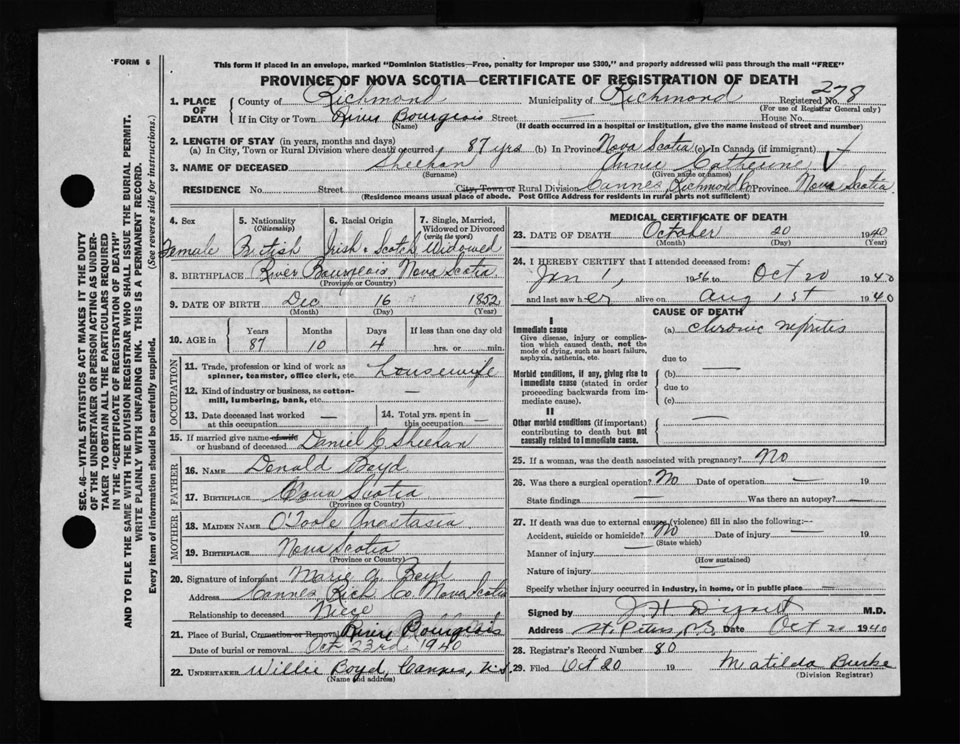 FORM 6
This form if placed in an envelope, marked "Dominion Statistics—Free, penalty for improper use $300," and properly addressed will pass through the mail "FREE"
PROVINCE OF NOVA SCOTIA—CERTIFICATE OF REGISTRATION OF DEATH
278
1. PLACE OF DEATH County of Richmond Municipality of Richmond Registered No.
(For use of Registrar General only)
If in City or Town River Bourgeois Street — House No.
(Name) (If death occurred in a hospital or institution, give the name instead of street and number)
2. LENGTH OF STAY (in years, months and days)
(a) In City, Town or Rural Division where death occurred 87 yrs (b) In Province Nova Scotia (c) In Canada (if immigrant)
3. NAME OF DECEASED Sheehan Annie Catherine
(Surname) (Given name or names)
RESIDENCE No. Street City, Town or Rural Division Cannes, Richmond Co Province Nova Scotia
(Residence means usual place of abode. Post Office Address for residents in rural parts not sufficient)
SEC. 46—VITAL STATISTICS ACT MAKES IT THE DUTY
OF THE UNDERTAKER OR PERSON ACTING AS UNDER-
TAKER TO OBTAIN ALL THE PARTICULARS REQUIRED
IN THE "CERTIFICATE OF REGISTRATION OF DEATH"
AND TO FILE THE SAME WITH THE DIVISION REGISTRAR WHO SHALL ISSUE THE BURIAL PERMIT.
WRITE PLAINLY WITH UNFADING INK. THIS IS A PERMANENT RECORD.
Every item of information should be carefully supplied. (See reverse side for instructions.)
4. Sex 5. Nationality 6. Racial Origin 7. Single, Married,
(Citizenship) Widowed or Divorced
(write the word)
Female British Irish & Scotch Widowed
8. BIRTHPLACE River Bourgeois, Nova Scotia
(Province or Country)
9. DATE OF BIRTH Dec 16 1852
(Month) (Day) (Year)
10. AGE in Years Months Days If less than one day old
87 10 4 hrs. or min.
OCCUPATION
11. Trade, profession or kind of work as
spinner, teamster, office clerk, etc. Housewife
12. Kind of industry or business, as cotton-
mill, lumbering, bank, etc. —
13. Date deceased last worked
at this occupation —
14. Total yrs. spent in
this occupation —
15. If married give name of wife
or husband of deceased Daniel C Sheehan
FATHER
16. NAME Donald Boyd
17. BIRTHPLACE Nova Scotia
(Province or Country)
MOTHER
18. MAIDEN NAME O'Toole Anastasia
19. BIRTHPLACE Nova Scotia
(Province or Country)
20. Signature of informant Marie A. Boyd
Address Cannes Rich Co. Nova Scotia
Relationship to deceased Niece
21. Place of Burial, Cremation or Removal River Bourgeois
Date of burial or removal Oct. 23rd. 1940
22. UNDERTAKER Willie Boyd, Cannes, N.S
(Name and address)
MEDICAL CERTIFICATE OF DEATH
23. DATE OF DEATH October 20 1940
(Month) (Day) (Year)
24. I HEREBY CERTIFY that I attended deceased from:
Jan 1, 1936 to Oct 20 1940
and last saw her alive on Aug 1st 1940
CAUSE OF DEATH
I
Immediate cause (a) chronic nephritis
Give disease, injury or complica-
tion which caused death, not the
mode of dying, such as heart failure,
asphyxia, asthenia, etc. due to
Morbid conditions, if any, giving rise to (b) —
immediate cause (stated in order
proceeding backwards from im-
mediate cause). due to
(c)
II
Other morbid conditions (if important) —
contributing to death but not
causally related to immediate cause.
25. If a woman, was the death associated with pregnancy? No
26. Was there a surgical operation? No Date of operation — 19
State findings — Was there an autopsy? —
27. If death was due to external causes (violence) fill in also the following:—
Accident, suicide or homicide? No Date of injury — 19
(State which)
Manner of injury —
(How sustained)
Nature of injury
Specify whether injury occurred in industry, in home, or in public place —
Signed by M.D.
Address St. Peters, N.S. Date Oct 20 1940
28. Registrar's Record Number 80
29. Filed Oct 20 19 Matilda Burke
(Division Registrar)